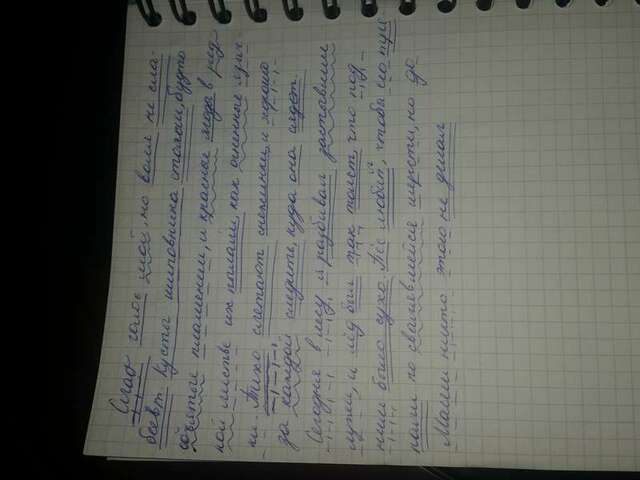 Слаб голос мой, но воля не сла-
беет. Кусты шиповника стояли, будто
объятые пламенем, и красные ягоды в ред-
кой листве их пылали, как огненные языч-
ки. Тихо слетают снежинки, и хорошо
за каждой следить, куда она сядет.
Сегодня в лесу я разбивал застывшие
лужи, и лёд был так толст, что под
ним было сухо. Пёс любил, чтобы его тре
пали по свалявшейся шерсти, но до
Маши никто этого не делал